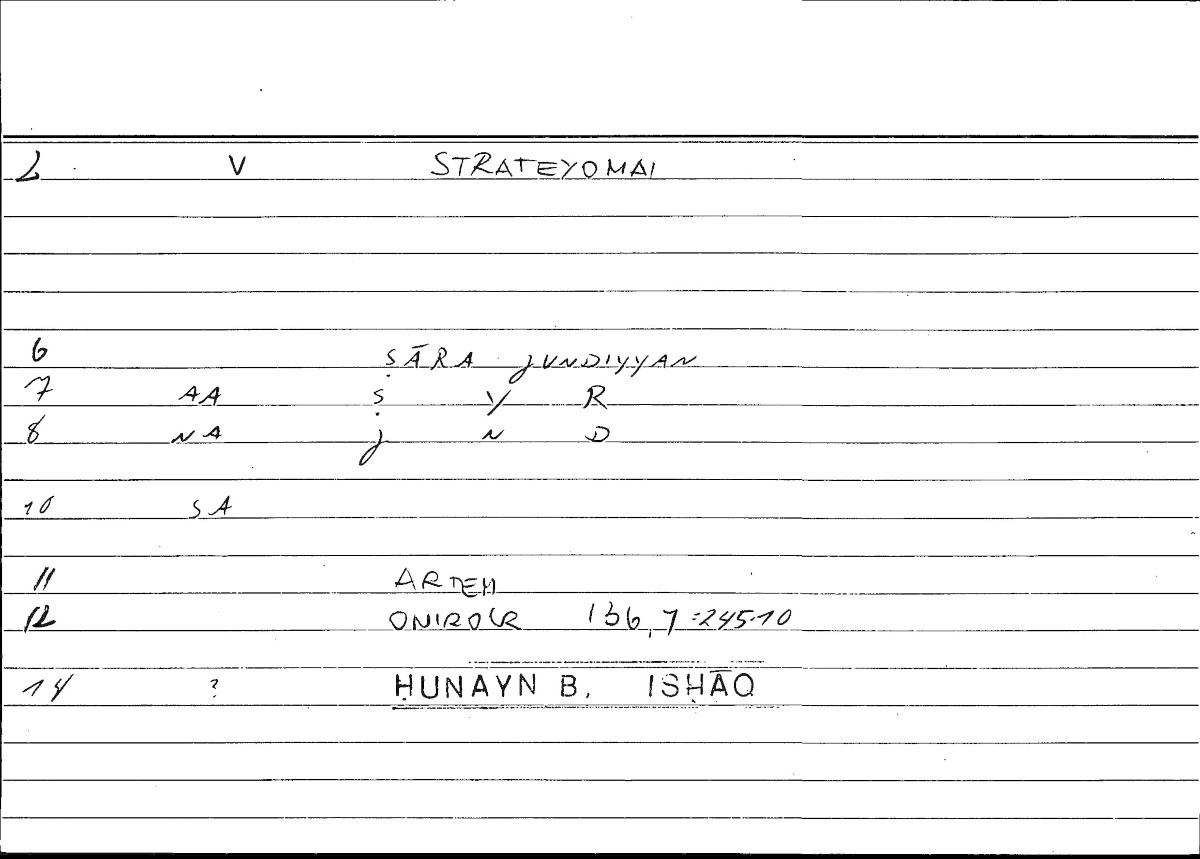 2 V STRATEYOMAI
6 ṢĀRA JUNDIYYAN
7 AA Ṣ Y R
8 NA J N D
10 SA
11 ARTEM
12 ONIROCR 136,7=245.10
14 ? ḤUNAYN B. ISḤĀQ